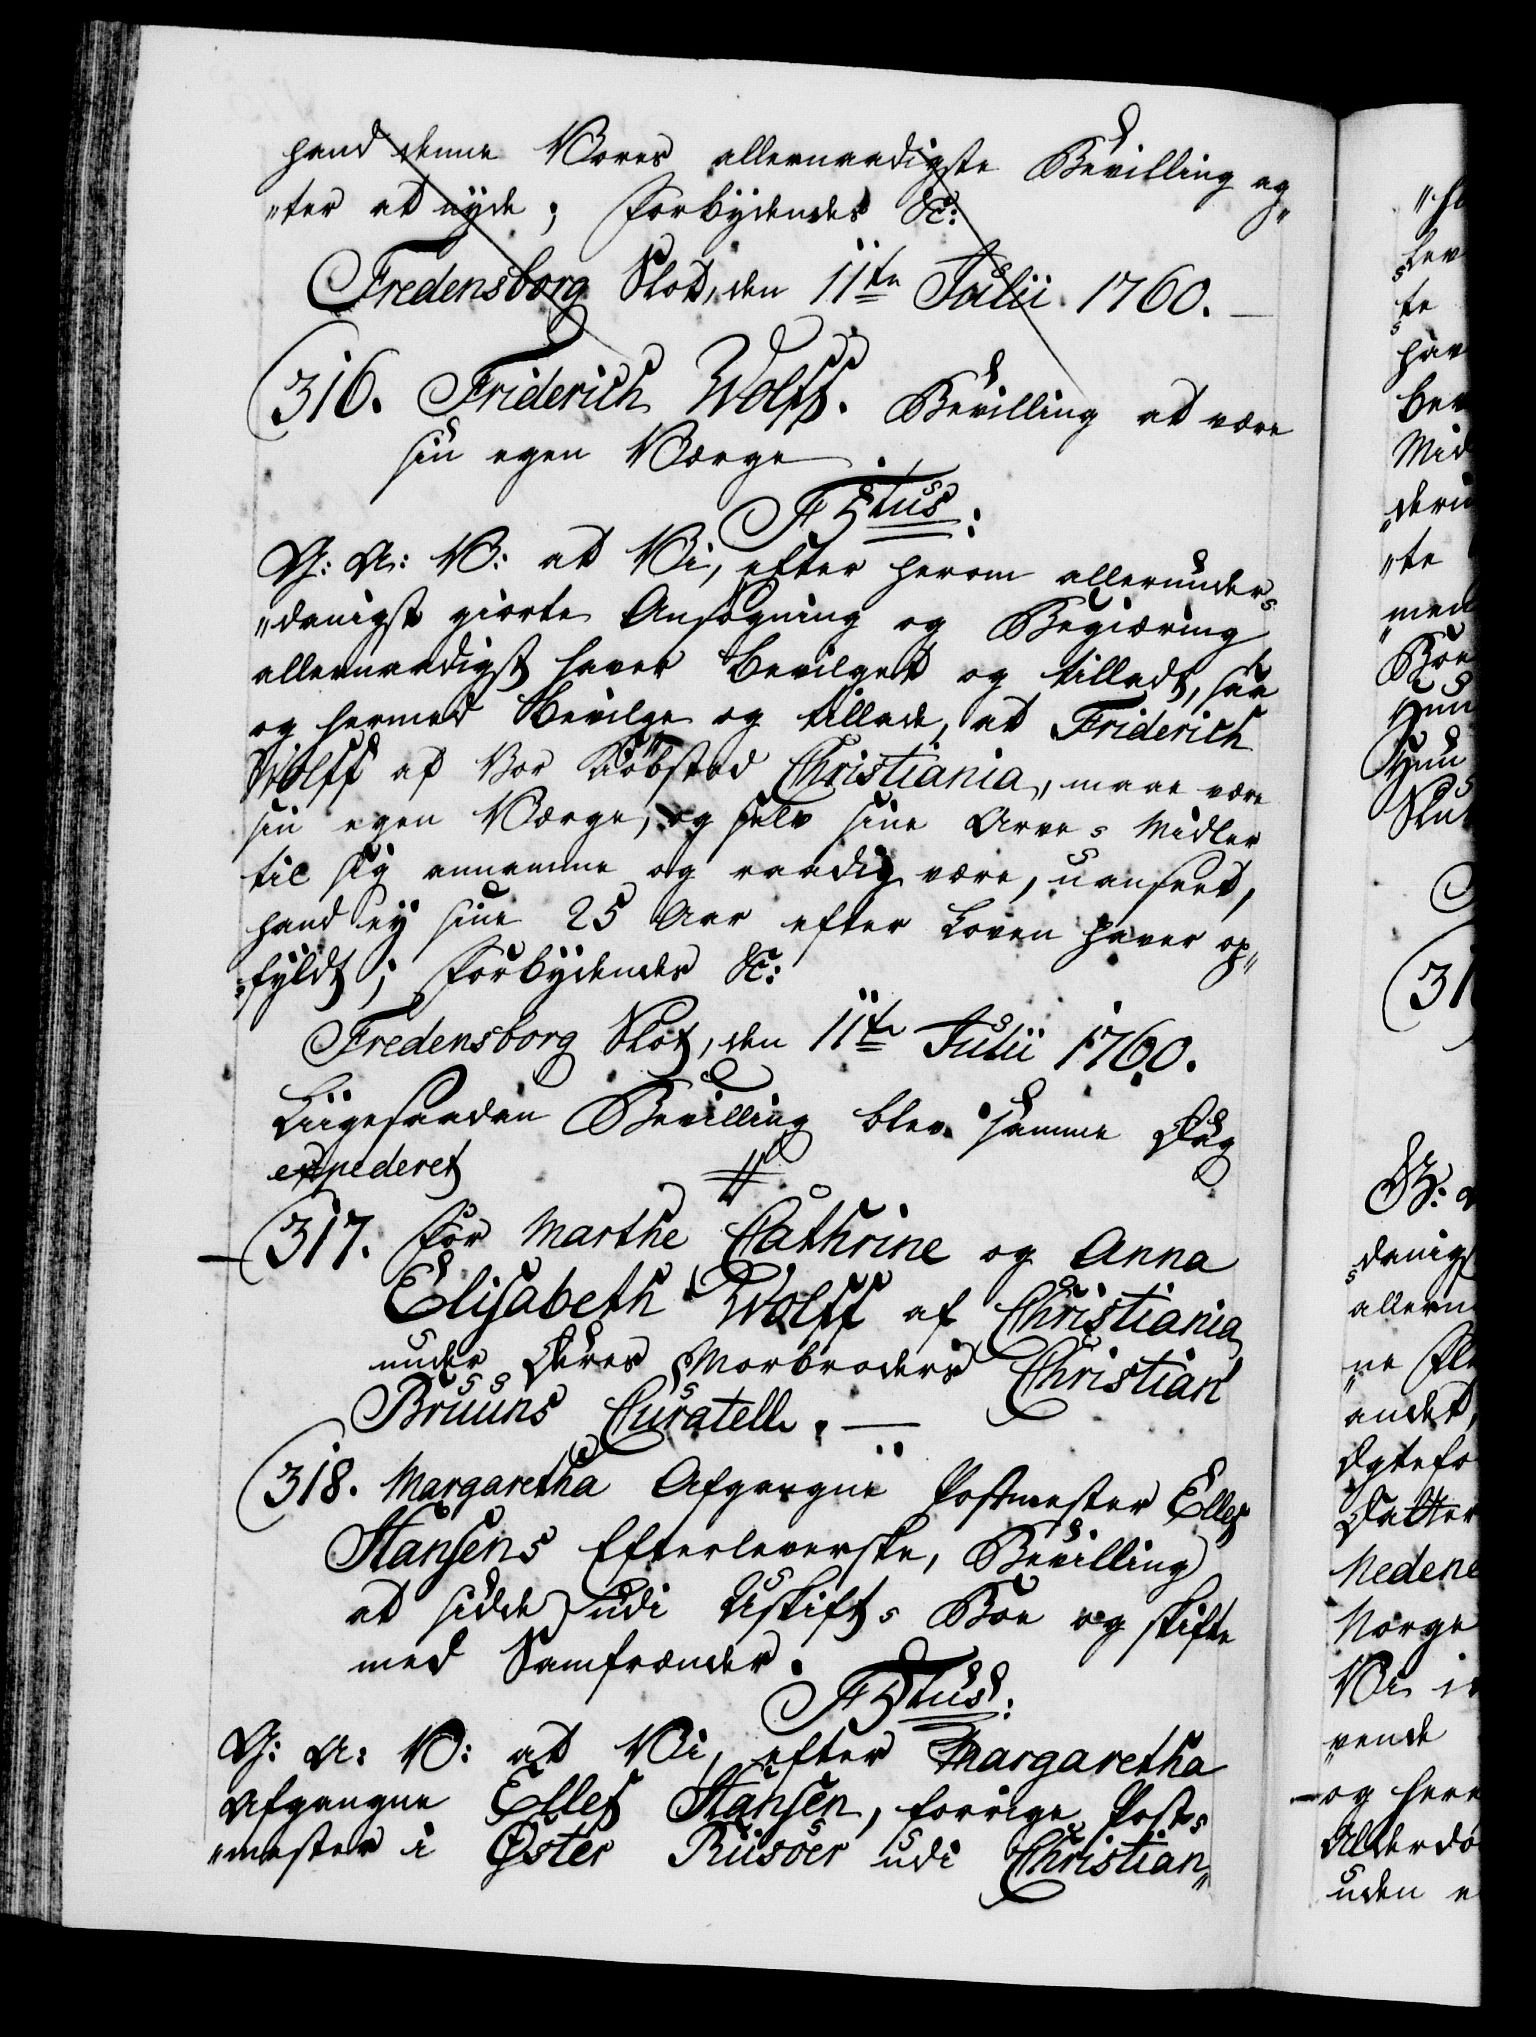 hand denne Vores allernaadigste Bevilling ag„
„ter at nyde; Forbydendes &c:
Fredensborg Slot, den 11te Julii 1760.
316. Friderich Wolff. Bevilling at være
sin egen Værge.
F5tus:
G: A: V: at Vi, efter herom allerunder„
„danigst giorte Ansøgning og Begiæring
allernaadigst haver bevilget og tilladt, saa
og hermed bevilge og tillade, at Friderich
Wolff af Vor Kiøbstad Christiania, maae være
sin egen Værge, og selv sine Arve-Midler
til sig annamme og raadig være, uanseet,
hand ey sine 25 Aar efter Loven haver op„
„fyldt; Forbydendes &c:
Fredensborg Slot, den 11te Julii 1760.
Liigesaadan Bevilling blev samme Dag
expederet
317. For Marthe Cathrine og Anna
Elisabeth Wolff af Christiania
under Deres Morbroders Christian
Bruuns Curatelle.
318. Margaretha Afgangne Postmester Ellef
Hansens Efterleverske, Bevilling
at sidde udi Uskift-Boe og skifte
med Samfrænder.
F5tus:
G: A: V: at Vi, efter Margaretha
Afgangne Ellef Hansen, forrige Post-
„mester i Øster Riisöer udi Christian„